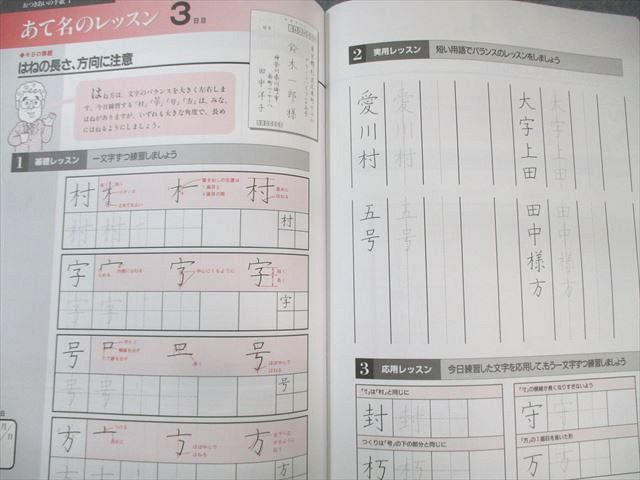 おつきあいの手紙 1
あて名のレッスン 3日目
◆今日の課題
はねの長さ、方向に注意
はね方は、文字のバランスを大きく左右しま
す。今日練習する「村」「字」「号」「方」は、みな、
はねがありますが、いずれも大きな角度で、長め
にはねるようにしましょう。
鈴木一郎様
田中洋子
1 基礎レッスン 一文字ずつ練習しましょう
村
村
村
村
字
内側にはねる
中心にくるように
字
字
字
号
号
号
号
方
方
方
方
2 実用レッスン 短い用語でバランスのレッスンをしましょう
大字上田
大字上田
田中様方
田中様方
愛川村
愛川村
五号
五号
3 応用レッスン 今日練習した文字を応用して、もう一文字ずつ練習しましょう
「寸」は「村」と同じに
封
封
つくりは「号」の下の部分と同じに
朽
守
「方」の1画目を除いた形
万